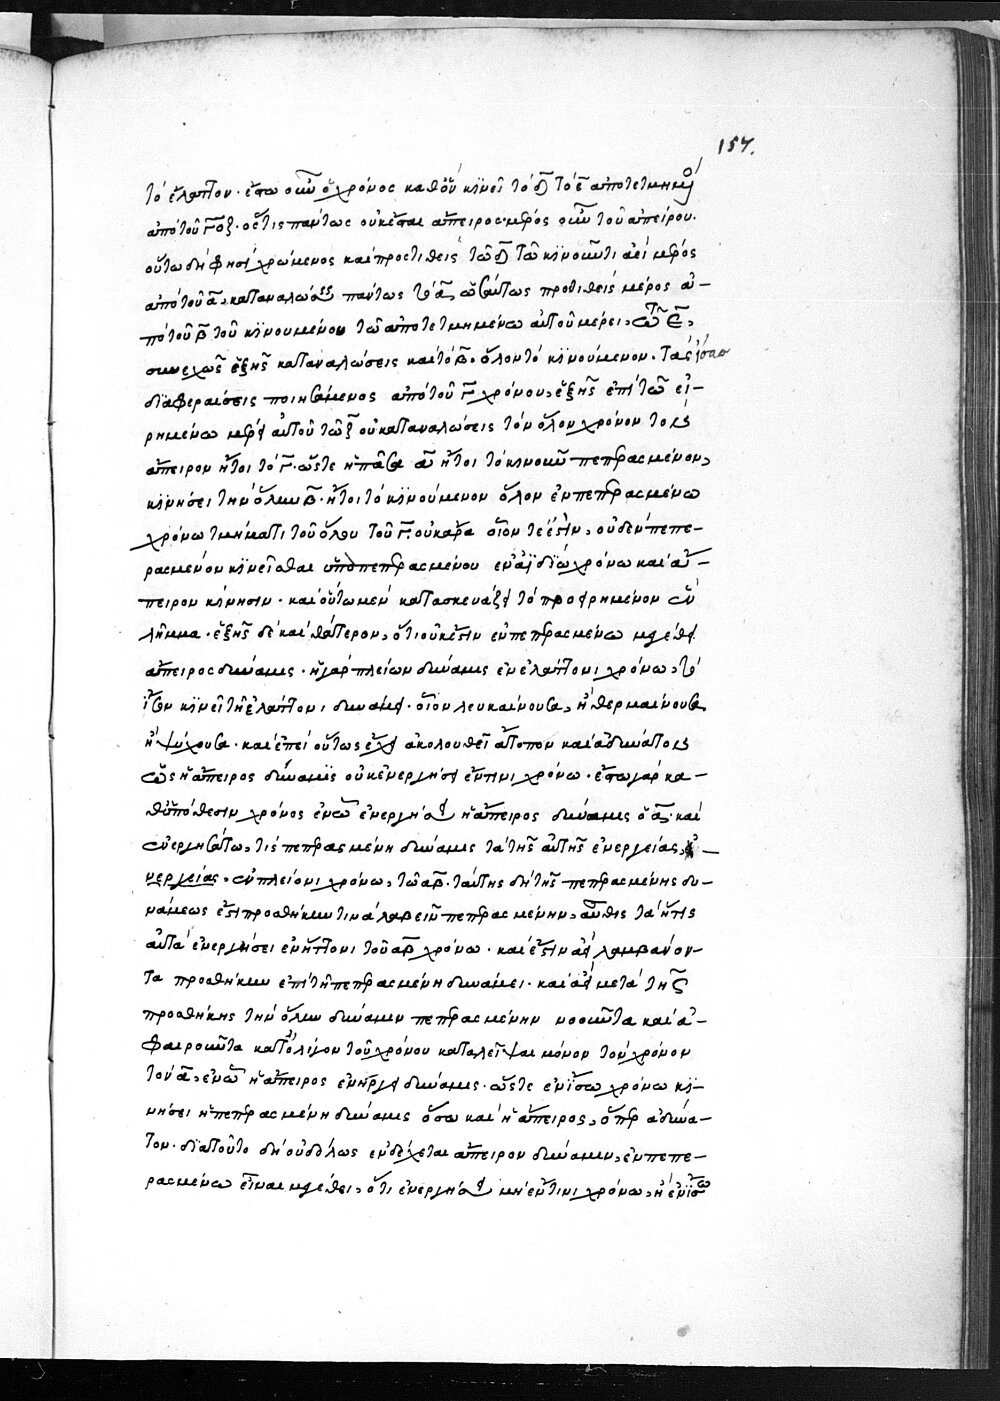 157.
τὸ ἔλαττον. ἔστω οὖν ὁ χρόνος καθ' ὃν κινεῖ τὸ δ̄ τὸ ε̄ ἀποτετμημένον
ἀπὸ τοῦ γ̄ ὁ ζ̄. ὅς τις πάντως οὐκ ἔσται ἄπειρος· μέρος οὖν τοῦ ἀπείρου.
οὕτω δή φησι χρώμενος καὶ προστιθεὶς τῶ δ̄ τῶ κινοῦντι ἀεὶ μέρος
ἀπὸ τοῦ ᾱ, καταναλώσεις πάντως τὸ ᾱ, ὡσαύτως προτιθεὶς μέρος ἀ-
πὸ τοῦ β̄ τοῦ κινουμένου τῶ ἀποτετμημένω αὐτοῦ μέρει, τῶ ε̄,
συνεχῶς ἑξῆς καταναλώσεις καὶ τὸ β̄ ὅλον τὸ κινούμενον. τὰς ἴσας
διαφεραιόεις ποιησάμενος ἀπὸ τοῦ γ̄ χρόνου, ἑξῆς ἐπὶ τῶ εἰ-
ρημένω μέρει αὐτοῦ τῶ ζ̄ οὐ καταναλώσεις τὸν ὅλον χρόνον τοὺς
ἄπειρον ἤτοι τὸ γ̄. ὥστε ἡ πᾶσα ᾱ ἤτοι τὸ κινοῦν πεπερασμένον,
κινήσει τὴν ὅλην β̄. ἤτοι τὸ κινούμενον ὅλον ἐν πεπερασμένω
χρόνω τμήματι τοῦ ὅλου τοῦ γ̄. οὐκ ἄρα οἷόν τέ ἐστιν, οὐδὲν πεπε-
ρασμένον κινεῖσθαι ὑπὸ πεπερασμένου ἐν ἀϊδίω χρόνω καὶ ἄ-
πειρον κίνησιν. καὶ οὕτω μὲν κατασκευάζει τὸ προειρημένον
λῆμμα. ἑξῆς δὲ καὶ θάτερον, ὅτι οὐκ ἔστιν ἐν πεπερασμένω μεγέθει
ἄπειρος δύναμις. ἡ γὰρ πλείων δύναμις ἐν ἐλάττονι χρόνω, τὸ
ἴσον κινεῖ τῆ ἐλάττονι δυνάμει. οἷον λευκαίνουσα, ἢ θερμαίνουσα
ἢ ψύχουσα. καὶ ἐπεὶ οὕτως ἔχει ἀκολουθεῖ ἄτοπον καὶ ἀδύνατον
ὡς ἡ ἄπειρος δύναμις οὐκ ἐνεργήσει ἔν τινι χρόνω. ἔστω γὰρ κα-
θ' ὑπόθεσιν χρόνος ἐν ὧ ἐνεργήσει ἡ ἄπειρος δύναμις ὁ ᾱ. καὶ
ἐνεργησάτω, τὶς πεπερασμένη δύναμις τὰ τῆς αὐτῆς ἐνεργείας, ἐ-
νεργείας, ἐν πλείονι χρόνω, τῶ ᾱβ̄. ταύτης δὴ τῆς πεπερασμένης δυ-
νάμεως ἔστι προσθήκην τινὰ λαβεῖν πεπερασμένην, αὖθις τὰ ἥτις
αὐτὰ ἐνεργήσει ἐν ἥττονι τοῦ ᾱβ̄ χρόνω. καὶ ἔστιν ἀεὶ λαμβάνον-
τα προσθήκην ἐπὶ τῆ πεπερασμένη δυνάμει. καὶ ἀεὶ μετὰ τῆς
προσθήκης τὴν ὅλην δύναμιν πεπερασμένην νοοῦντα καὶ ἀ-
φαιροῦντα κατ' ὀλίγον τοῦ χρόνου καταλεῖψαι μόνον τὸν χρόνον
τὸν ᾱ, ἐν ὧ ἡ ἄπειρος ἐνήργει δύναμις. ὥστε ἐν ἴσω χρόνω κι-
νήσει ἡ πεπερασμένη δύναμις ὅσω καὶ ἡ ἄπειρος, ὅπερ ἀδύνα-
τον. διὰ τοῦτο δὴ οὐδ' ὅλως ἐνδέχεται ἄπειρον δύναμιν, ἐν πεπε-
ρασμένω εἶναι μεγέθει, ὅτι ἐνεργήσει μὴ ἔν τινι χρόνω, ἢ ἐν ἴσω